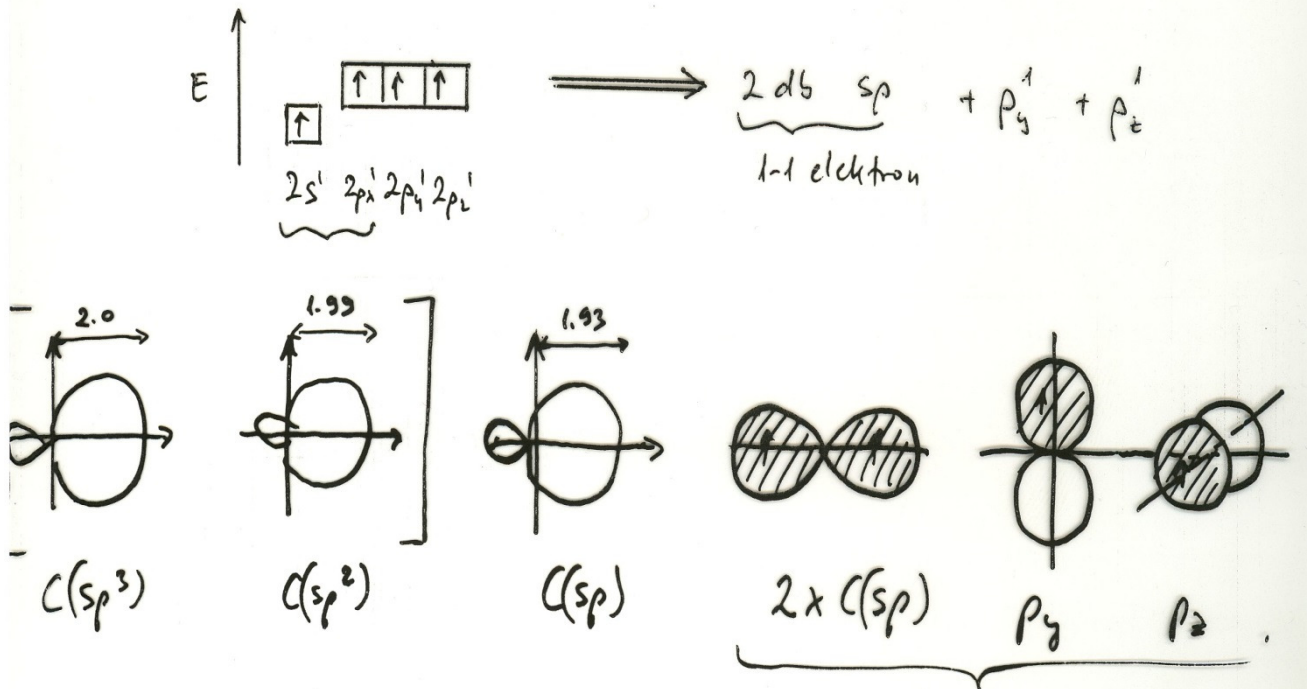 E
↑ ↑ ↑
↑
2s¹ 2pₓ¹ 2pᵧ¹ 2p_z¹
2 db sp + pᵧ¹ + p_z¹
1-1 elektron
2.0 1.99 1.93
C(sp³) C(sp²) C(sp) 2 x C(sp) pᵧ p_z